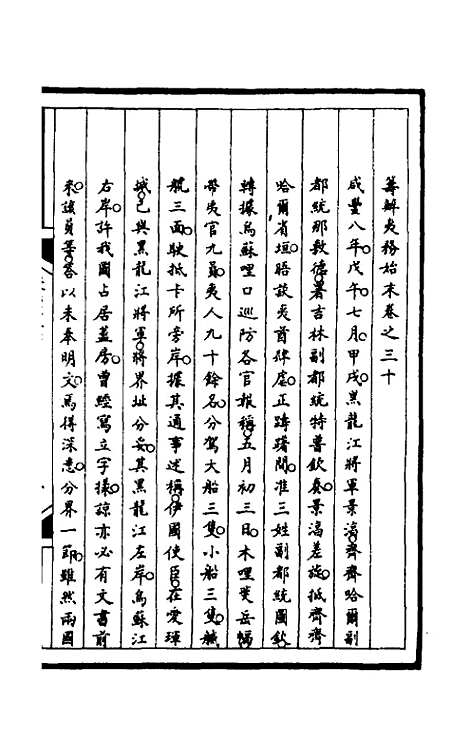 籌辦夷務始末卷之三十
咸豐八年戊午七月甲戌黑龍江將軍景淳齊齊哈爾副
都統那敦德署吉林副都統特普欽奏景淳差旋抵齊齊
哈爾省垣晤談夷酋陣虛正躊躇間准三姓副都統圖欽
轉據烏蘇哩口巡防各官報稱五月初三日木哩斐岳幅
帶夷官九員夷人九十餘名分駕大船三隻小船三隻艤
航三面駛抵卡所旁岸據其通事述稱伊國使臣在愛琿
城已與黑龍江將軍將界址分妥其黑龍江左岸烏蘇江
右岸許我國占居蓋房曾經寫立字樣諒亦必有文書前
來該員等答以未奉明文焉得深悉分界一節雖然兩國